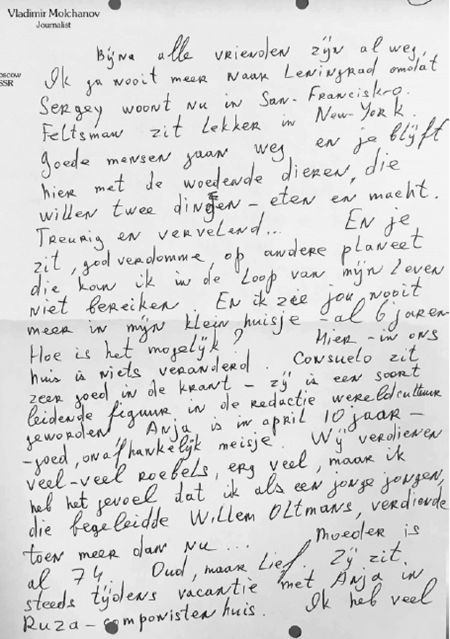 Vladimir Molchanov
Journalist
oscow
SSR
Bijna alle vrienden zijn al weg.
Ik ga nooit meer naar Leningrad omdat
Sergey woont nu in San-Francisko.
Feltsman zit lekker in New-York.
Goede mensen gaan weg en je blijft
hier met de woedende dieren, die
willen twee dingen – eten en macht.
Treurig en vervelend... En je
zit, godverdomme, op andere planeet
die kan ik in de loop van mijn leven
niet bereiken. En ik zie jou nooit
meer in mijn klein huisje – al 6 jaren
Hoe is het mogelijk? Hier – in ons
huis is niets veranderd. Consuelo zit
zeer goed in de krant – zij is een soort
leidende figuur in de redactie wereldcultuur
geworden. Anja is in april 10 jaar –
– goed, onafhankelijk meisje. Wij verdienen
veel-veel roebels, erg veel, maar ik
heb het gevoel dat ik als een jonge jongen,
die begeleidde Willem Oltmans, verdiende
toen meer dan nu... Moeder is
al 74. Oud, maar lief. Zij zit
steeds tijdens vacantie met Anja in
Ruza – componistenhuis. Ik heb veel